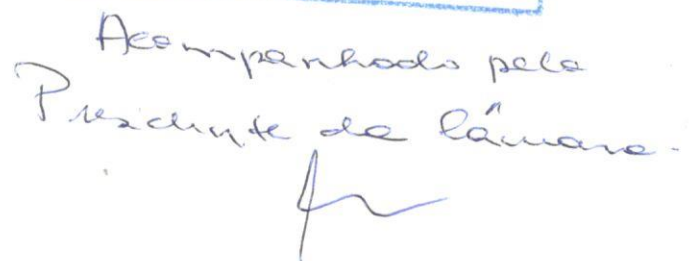 Acompanhado pelo
Presidente da Câmara.